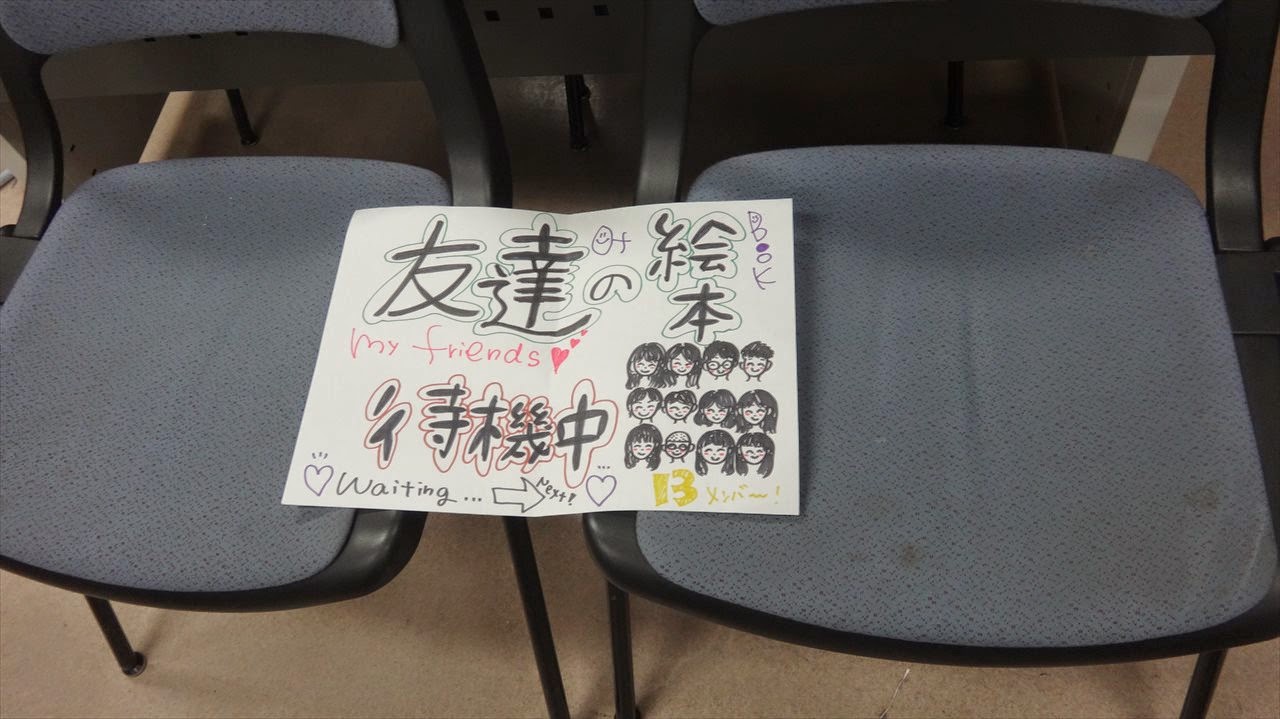 友達の絵本
OH
BOOK
my friends
待機中
Waiting...
Next!
13 メンバー!